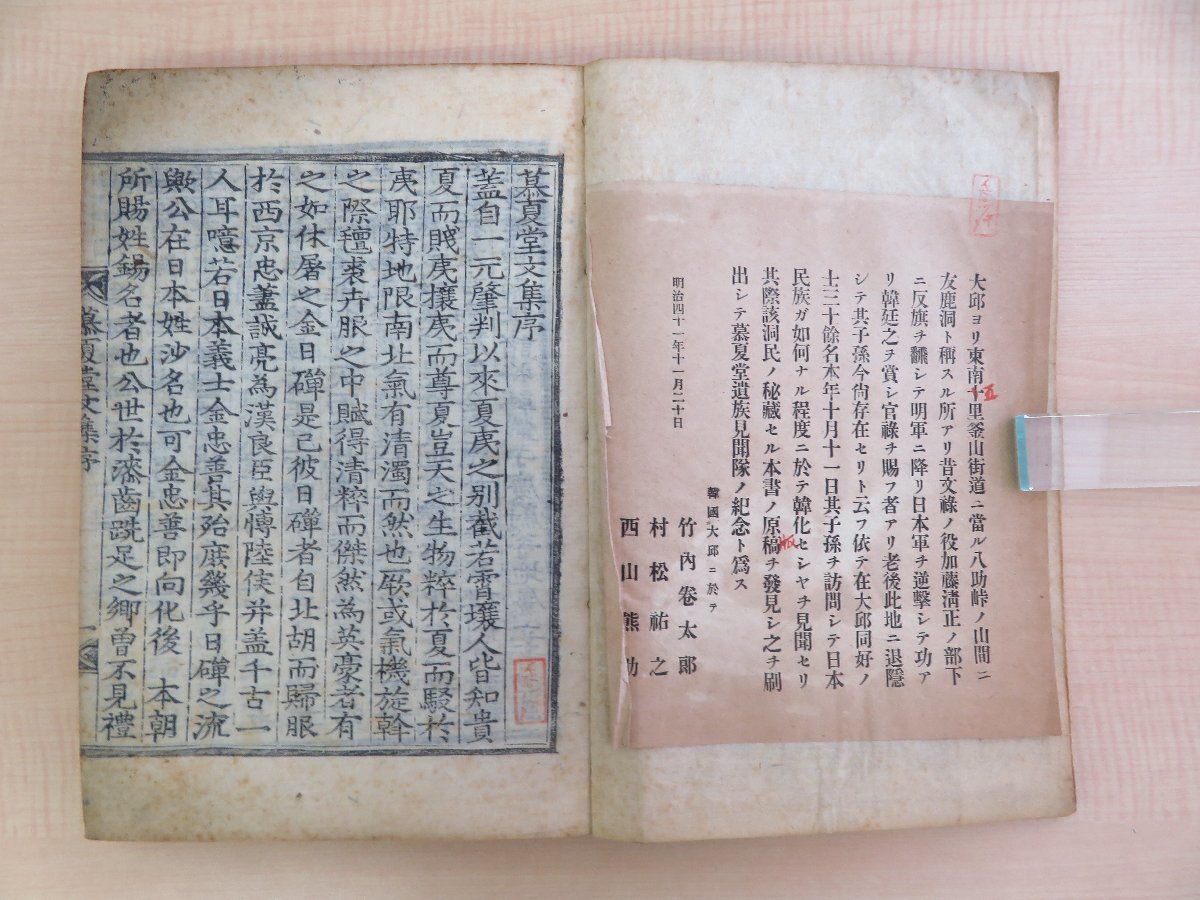 大邱ヨリ東南十里釜山街道ニ當ル八助峠ノ山間ニ
五
友鹿洞ト稱スル所アリ昔文祿ノ役加藤淸正ノ部下
ニ反旗チ飜シテ明軍ニ降リ日本軍チ逆擊シテ功ア
リ韓廷之チ賞シ官祿チ賜フ者アリ老後此地ニ退隱
シテ其子孫今尙存在セリト云フ依テ在大邱同好ノ
士三十餘名本年十月十一日其子孫チ訪問シテ日本
民族ガ如何ナル程度ニ於テ韓化セシヤチ見聞セリ
其際該洞民ノ秘藏セル本書ノ原稿チ發見シ之チ刷
版
出シテ慕夏堂遺族見聞隊ノ紀念ト爲ス
明治四十一年十一月二十日
韓國大邱ニ於テ
竹內卷太郞
村松祐之
西山熊助
慕夏堂文集序
蓋自一元肇判以來夏夷之別截若霄壤人皆知貴
夏而賤夷攘夷而尊夏豈天之生物粹於夏而駁於
夷耶特地限南北氣有清濁而然也厥或氣機旋斡
之際氊裘卉服之中賦得清粹而傑然為英豪者有
之如休屠之金日磾是已彼日磾者自北胡而歸服
於西京忠藎誠亮為漢良臣與博陸侯并盖千古一
人耳噫若日本義士金忠善其殆庶幾乎日磾之流
歟公在日本姓沙名也可金忠善即向化後 本朝
所賜姓錫名者也公世於漆齒跣足之鄉曾不見禮
慕夏堂文集序
一